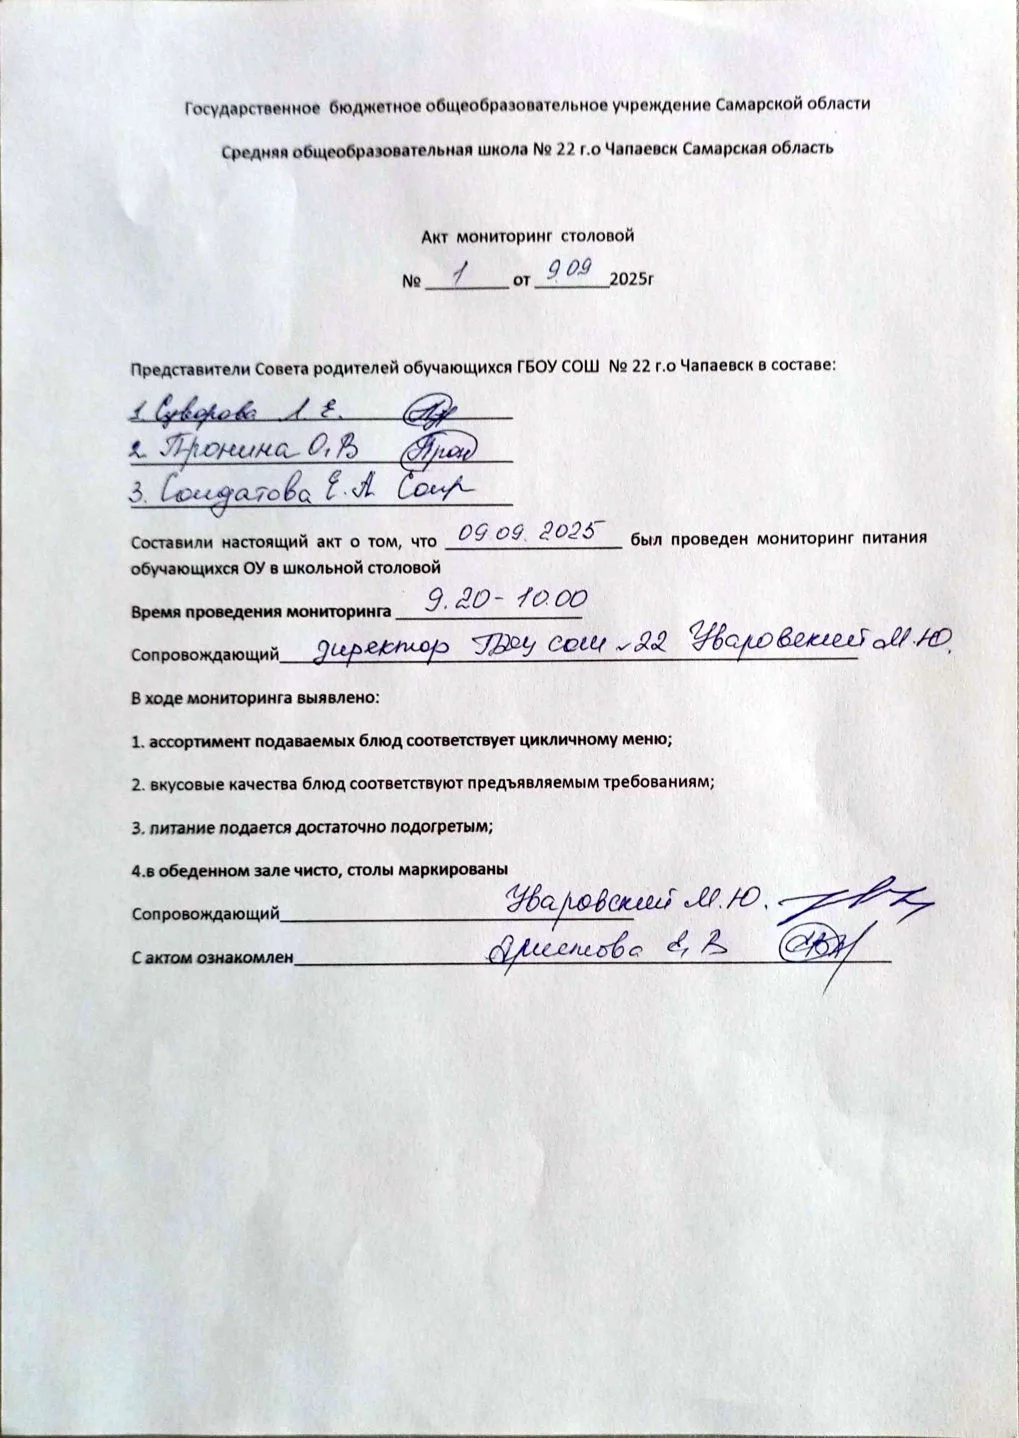 Государственное бюджетное общеобразовательное учреждение Самарской области
Средняя общеобразовательная школа № 22 г.о Чапаевск Самарская область
Акт мониторинг столовой
№ 1 от 9.09 2025г
Представители Совета родителей обучающихся ГБОУ СОШ № 22 г.о Чапаевск в составе:
1. Суворова Л. Е.
2. Пронина О, В Прон
3. Солдатова Е. А
Составили настоящий акт о том, что 09.09. 2025 был проведен мониторинг питания
обучающихся ОУ в школьной столовой
Время проведения мониторинга 9.20 - 10.00
Сопровождающий директор ГБОУ СОШ №22 Уваровский М.Ю.
В ходе мониторинга выявлено:
1. ассортимент подаваемых блюд соответствует цикличному меню;
2. вкусовые качества блюд соответствуют предъявляемым требованиям;
3. питание подается достаточно подогретым;
4.в обеденном зале чисто, столы маркированы
Сопровождающий Уваровский М.Ю.
С актом ознакомлен Аристова Е, В